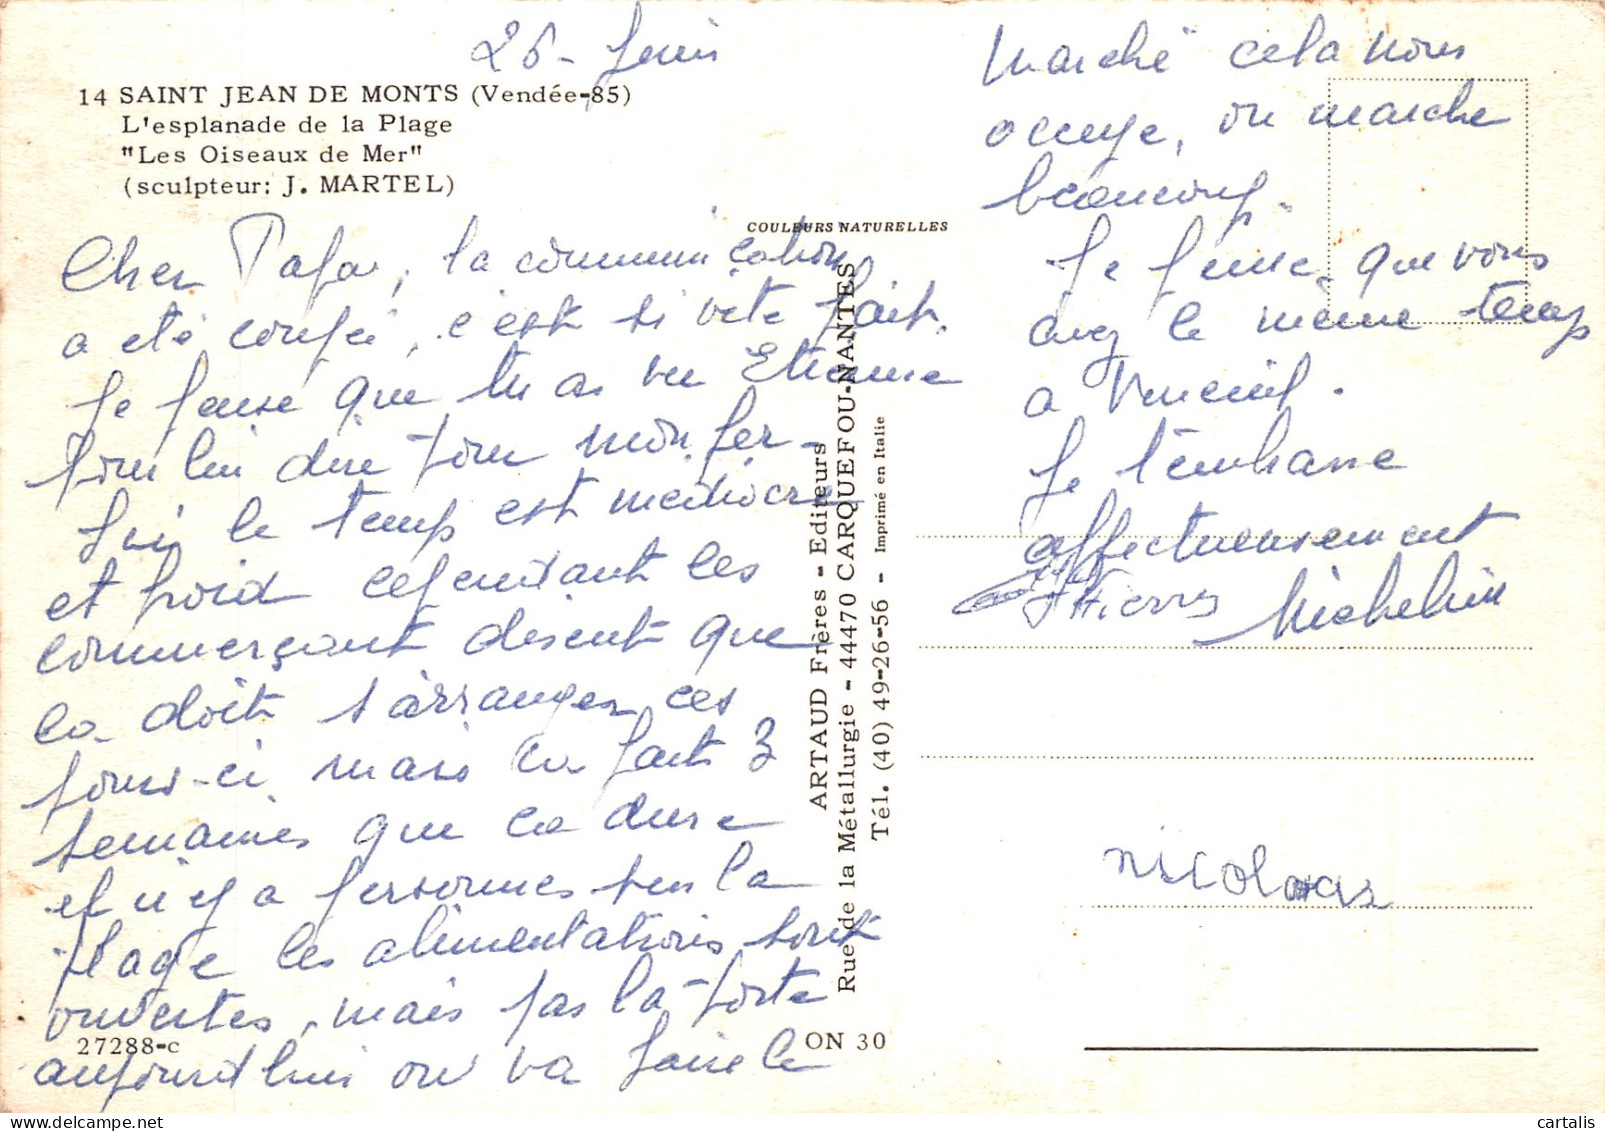 26 - Juin
14 SAINT JEAN DE MONTS (Vendée-85)
L'esplanade de la Plage
"Les Oiseaux de Mer"
(sculpteur: J. MARTEL)
COULEURS NATURELLES
Cher Papa, la communication
a été coupé, c'est si vite fait.
Je pense que tu as vu Etienne
pour lui dire pour mon
Ici le temps est médiocre
et froid cependant les
commerçant disent que
ca doit s'arranger ces
jours-ci mais ca fait 3
semaines que ca dure
et il y a personnes sur la
plage les alimentations sont
ouvertes, mais pas la poste
aujourd'hui on va faire le
marché cela nous
occupe, on marche
beaucoup.
Je pense que vous
avez le même temps
a Verneuil.
Je t'embrasse
affectueusement
Pierres Micheline
nicolas
ARTAUD Frères - Editeurs
Rue de la Métallurgie - 44470 CARQUEFOU-NANTES
Tél. (40) 49-26-56 - Imprimé en Italie
27288-c
ON 30
cartalis